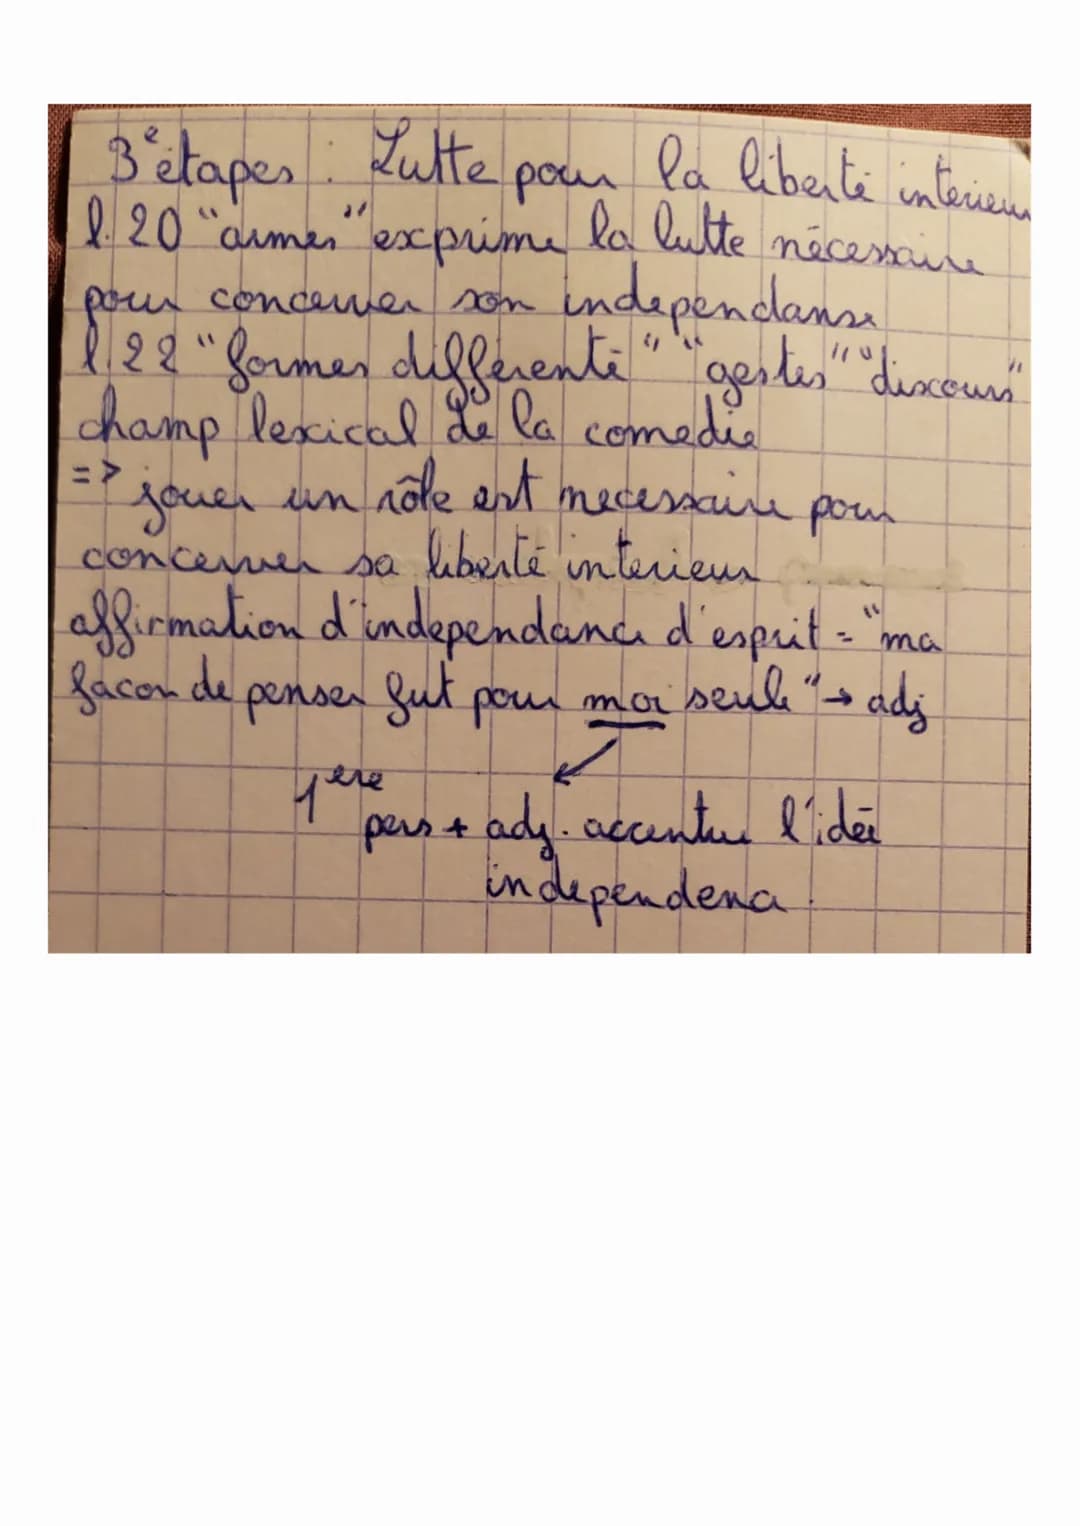 3e étapes : Lutte pour la liberté interieur
l.20 "armes" exprime la lutte nécessaire
pour concerver son independanse
l.22 "formes différente" "gestes" "discours"
champ lexical de la comedie
=> jouer un rôle est necessaire pour
concerver sa liberté interieur
affirmation d'independance d'esprit = "ma
facon de penser fut pour moi seule" → adj
1ere pers + adj. accentue l'idée
independence.